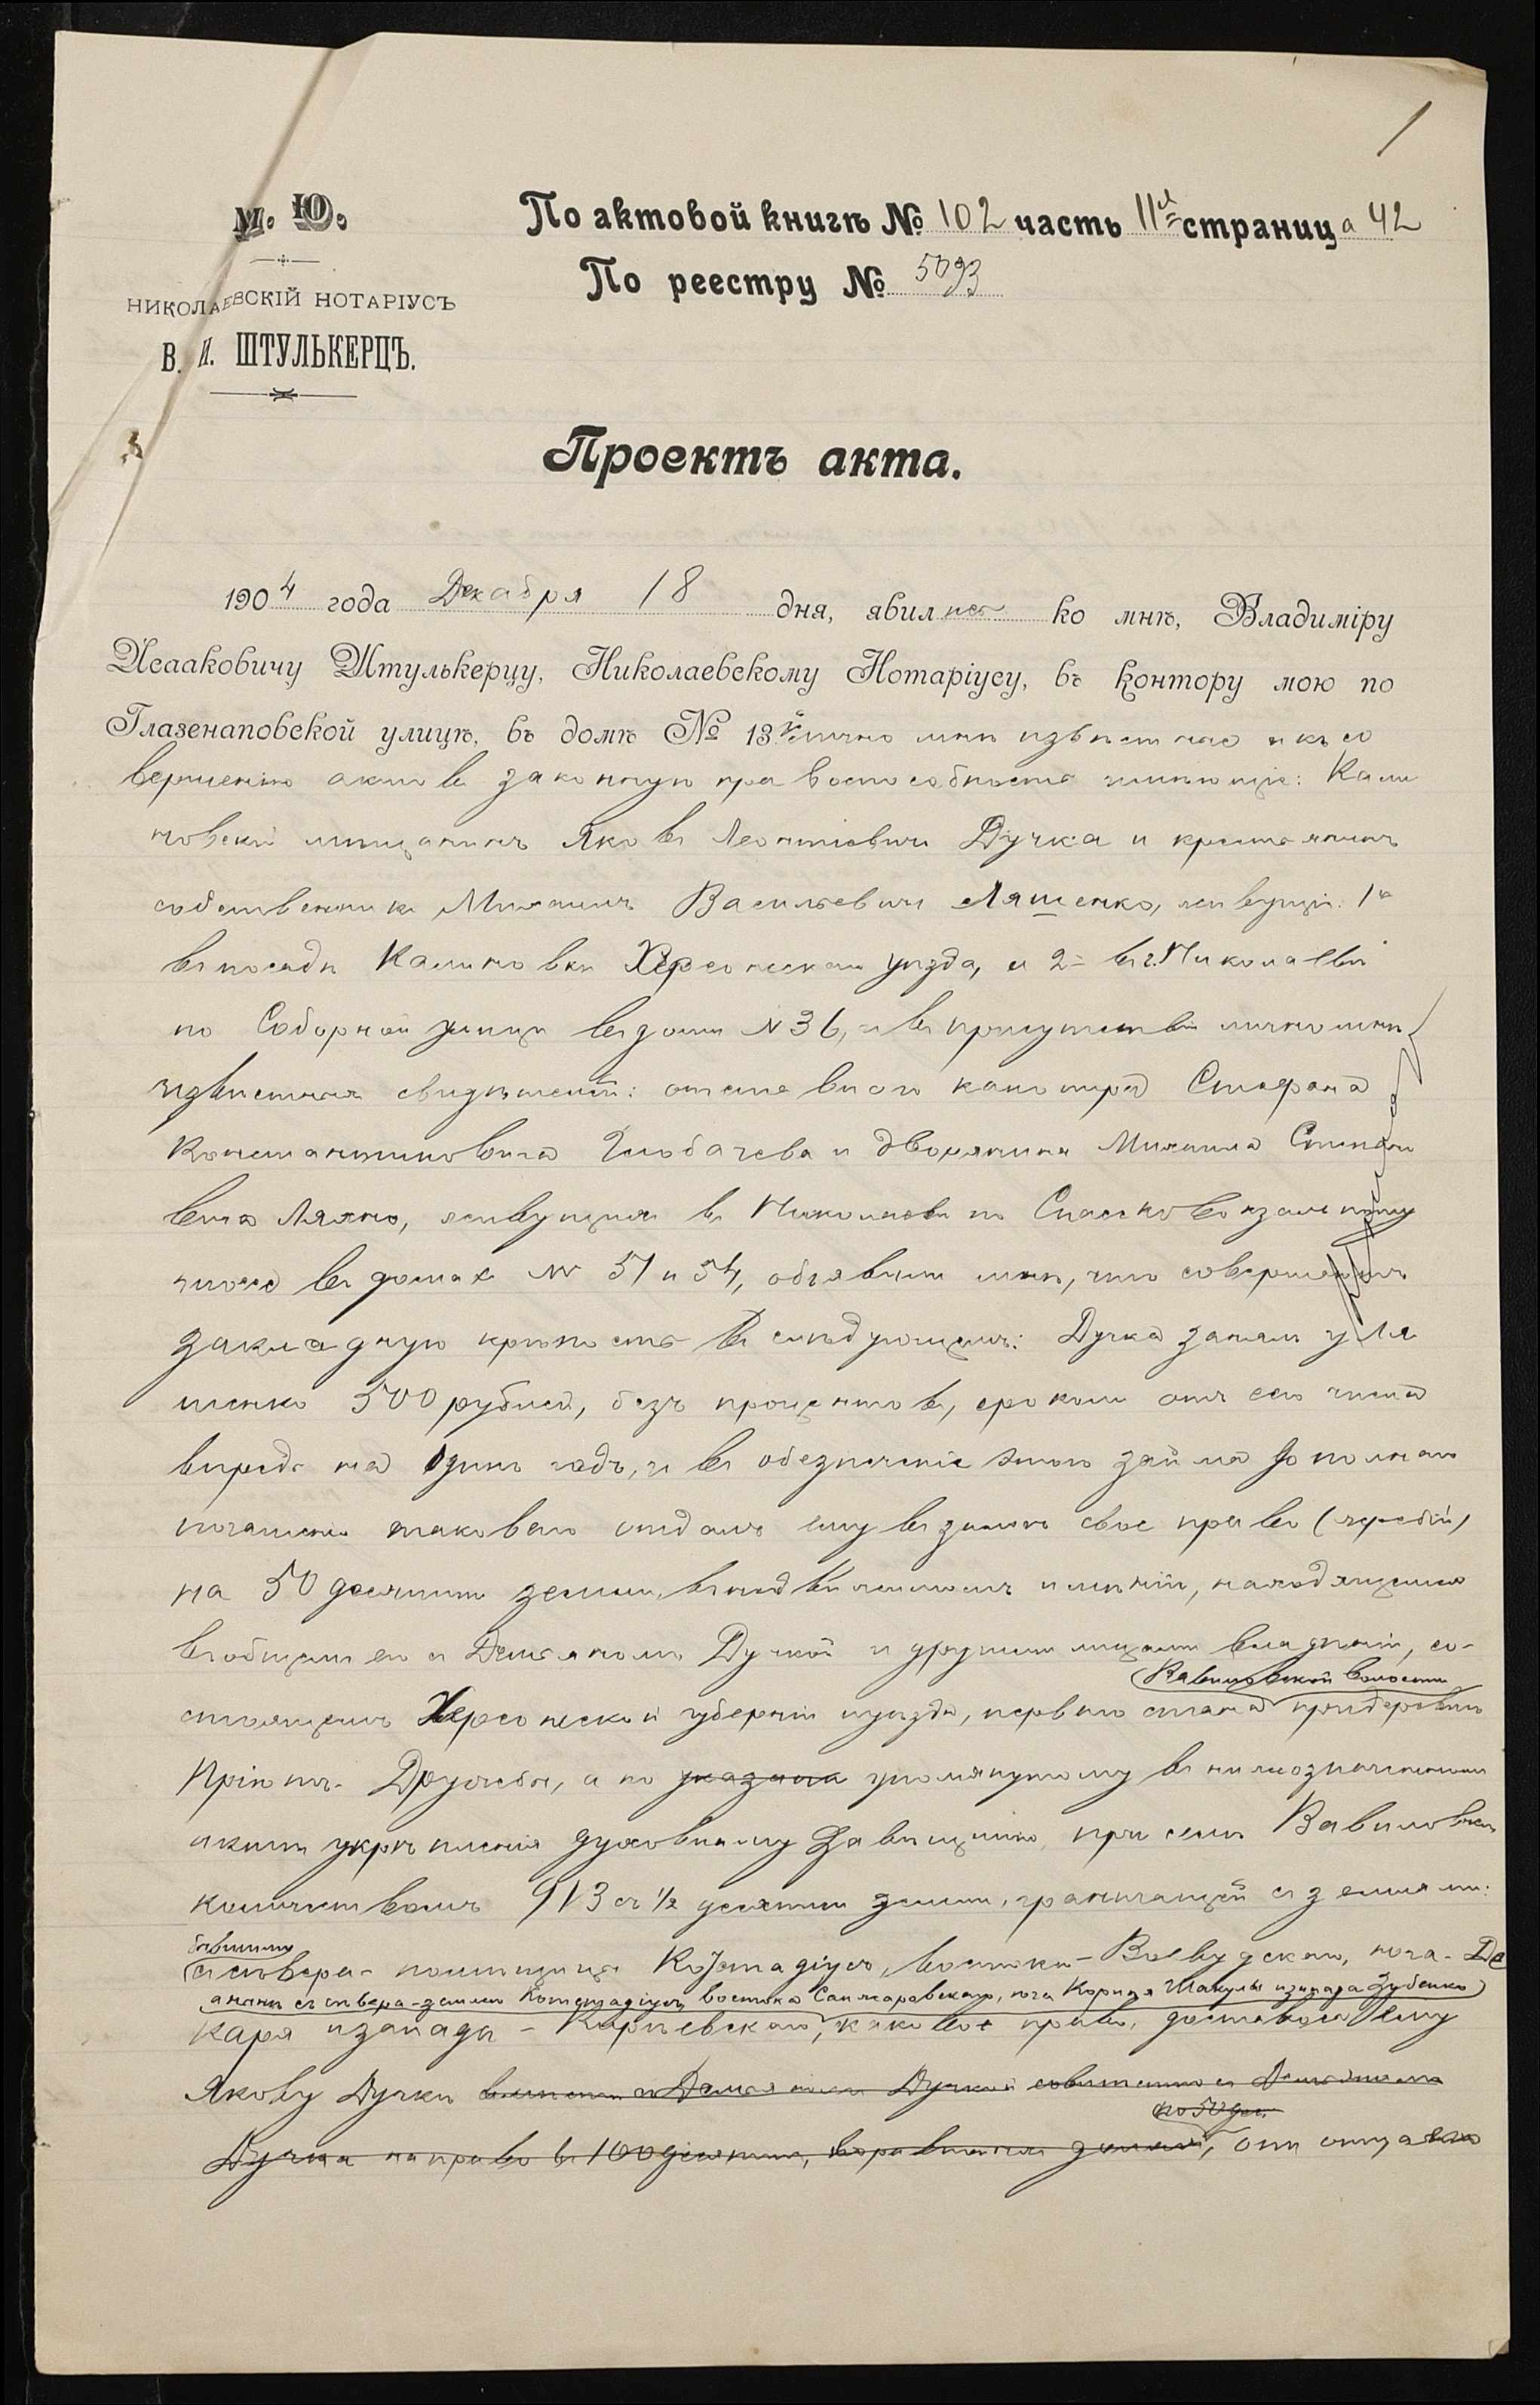 1
М. Ю.
НИКОЛАЕВСКІЙ НОТАРІУСЪ
В. И. ШТУЛЬКЕРЦЪ.
По актовой книгѣ № 102 часть II страница 42
По реестру № 5093
Проектъ акта.
1904 года Декабря 18 дня, явились ко мнѣ, Владиміру
Исааковичу Штулькерцу, Николаевскому Нотаріусу, въ контору мою по
Глазенаповской улицѣ, въ домѣ № 13 лично мнѣ извѣстные и къ со
вершенію актовъ законную правоспособность имѣющіе: Кали
новскій мѣщанинъ Яковъ Леонтіевичъ Дучка и крестьянинъ
собственникъ Михаилъ Васильевичъ Ляшенко, живущіе: 1й
въ посадѣ Калиновкѣ Херсонскаго уѣзда, и 2й въ г. Николаевѣ
по Соборной улицѣ въ домѣ № 36, и въ присутствіи лично мнѣ
извѣстныхъ свидѣтелей: Стефана
Константиновича и дворянина Михаила Степано
вича Ляхно, живущихъ въ Николаевѣ по
въ домахъ №№ 51 и 54, объявили мнѣ, что совершаютъ
закладную крѣпость въ слѣдующемъ: Дучка занялъ у Ля
шенко 500 рублей, безъ процентовъ, срокомъ отъ сего числа
впредь на одинъ годъ, и въ обезпеченіе этого займа до полнаго
погашенія таковаго отдалъ ему въ залогъ свое право (жребій)
на 50 десятинъ земли, въ недвижимомъ имѣніи, находящемся
въ общемъ его съ Демьяномъ Дучкой и другими лицами владѣніи, со-
Вавиловской волости
стоящемъ Херсонской губерніи и уѣзда, перваго стана при деревнѣ
Пріютъ-Дружбы, а по указана упомянутому въ нижеозначенномъ
актѣ укрѣпленія духовному завѣщанію, при селѣ Вавиловкѣ
количествомъ 913 съ 1/2 десятин земли, граничащей съ землями:
бывшими
съ сѣвера- помѣщицы востока- южа- Де
а нынѣ съ сѣвера-землею востока юга и запада Зубенко
каря и запада - каковое право, досталось ему
Якову Дучкѣ вмѣстѣ съ Демьяномъ Дучкой совмѣстно съ Демьяномъ
по 50 дес.
Дучка на право въ 100 десятинъ, въ равныхъ доляхъ, отъ отца его